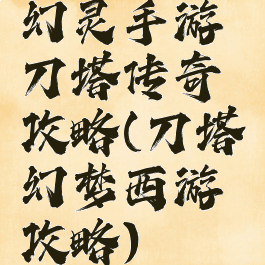 幻灵手游
刀塔传奇
攻略(刀塔
幻梦西游
攻略)